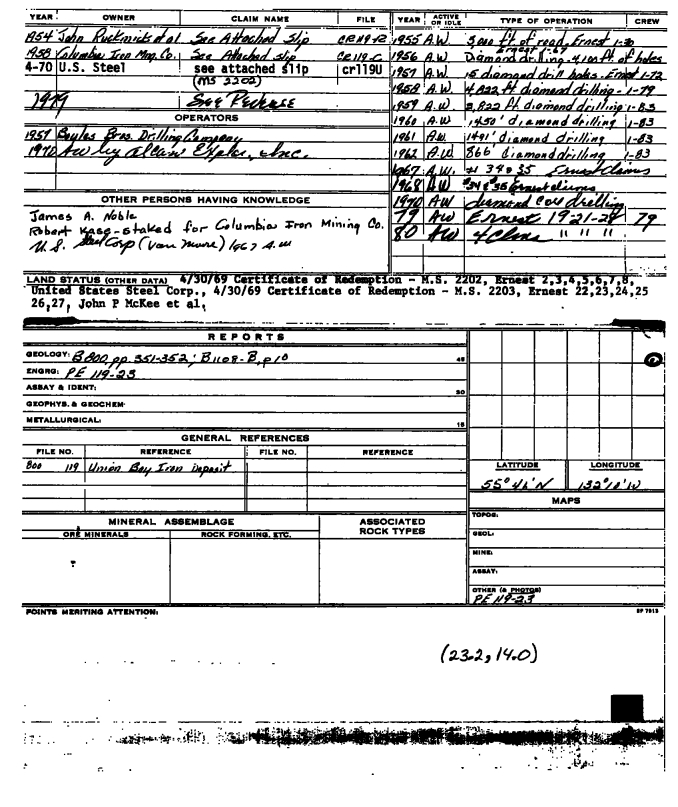 YEAR OWNER CLAIM NAME FILE YEAR ACTIVE OR IDLE TYPE OF OPERATION CREW
1954 John Ruckmick et al See Attached Slip CR119-R 1955 A.W. 3,000 ft of road, Ernest 1-30
1958 Columbia Iron Mng. Co. See Attached slip CR 119-C 1956 A.W. Diamond drilling - 4,100 ft of holes
4-70 U.S. Steel see attached slip cr119U 1957 A.W. 15 diamond drill holes. Ernest 1-72
(MS 2202) 1958 A.W. 4,822 ft diamond drilling - 1-79
1979 See Reverse 1959 A.W. 2,822 ft diamond drilling 1-83
OPERATORS 1960 A.W. 1450' diamond drilling 1-83
1957 Boyles Bros. Drilling Company 1961 A.W. 1491' diamond drilling 1-83
1970 AW by Alcan Explor., Inc. 1962 A.W. 866' diamond drilling 1-83
1967 A.W. #34 & 35 Ernest Claims
1968 AW #34 & 35 Ernest claims
OTHER PERSONS HAVING KNOWLEDGE 1970 AW diamond core drilling
James A. Noble 79 AW Ernest 19-21-28 79
Robert Kase-staked for Columbia Iron Mining Co. 80 AW 4 Clms " " "
U.S. Steel Corp (Van Moore) 1967 A.W
LAND STATUS (OTHER DATA) 4/30/69 Certificate of Redemption - M.S. 2202, Ernest 2,3,4,5,6,7,8,
United States Steel Corp., 4/30/69 Certificate of Redemption - M.S. 2203, Ernest 22,23,24,25
26,27, John P McKee et al,
REPORTS
GEOLOGY: B 800, pp. 351-352; B 1108-B, p 10 45
ENGRG: PE 119-23
ASSAY & IDENT: 30
GEOPHYS. & GEOCHEM.
METALLURGICAL: 15
GENERAL REFERENCES
FILE NO. REFERENCE FILE NO. REFERENCE
800 119 Union Bay Iron Deposit
LATITUDE LONGITUDE
55° 46' N 132° 18' W
MAPS
MINERAL ASSEMBLAGE ASSOCIATED ROCK TYPES TOPOG:
ORE MINERALS ROCK FORMING, ETC. GEOL:
MINE:
ASSAY:
OTHER (& PHOTOS)
PE 119-23
POINTS MERITING ATTENTION: SP 7913
(23.2, 14.0)